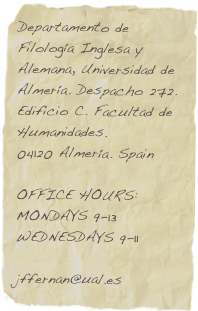 Departamento de
Filología Inglesa y
Alemana, Universidad de
Almería. Despacho 272.
Edificio C. Facultad de
Humanidades.
04120 Almería. Spain
OFFICE HOURS:
MONDAYS 9-13
WEDNESDAYS 9-11
jffernan@ual.es